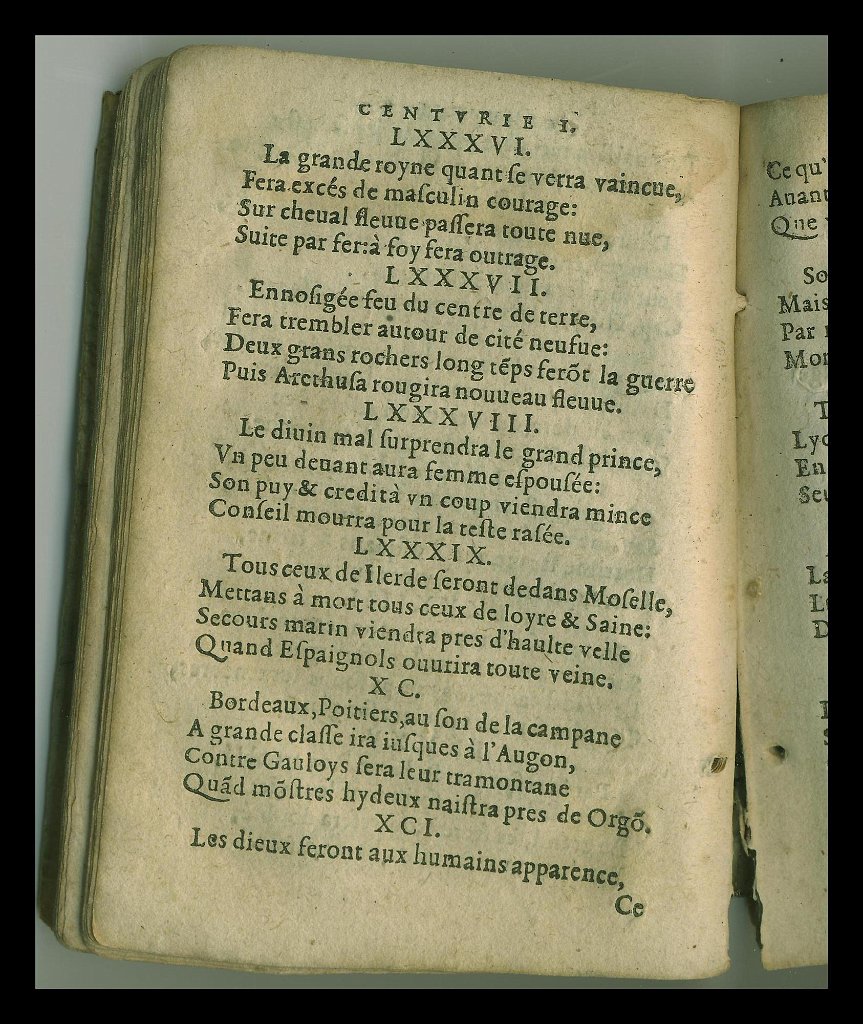 CENTVRIE I.
LXXXVI.
La grande royne quant ſe verra vaincue,
Fera excés de maſculin courage:
Sur cheual fleuue paſſera toute nue,
Suite par fer: à foy fera outrage.
LXXXVII.
Ennoſigée feu du centre de terre,
Fera trembler autour de cité neufue:
Deux grans rochers long tẽps ferõt la guerre
Puis Arethuſa rougira nouueau fleuue.
LXXXVIII.
Le diuin mal ſurprendra le grand prince,
Vn peu deuant aura femme eſpouſée:
Son puy & credit à vn coup viendra mince
Conſeil mourra pour la teſte raſée.
LXXXIX.
Tous ceux de Ilerde ſeront dedans Moſelle,
Mettans à mort tous ceux de loyre & Saine:
Secours marin viendra pres d'haulte velle
Quand Eſpaignols ouurira toute veine.
XC.
Bordeaux, Poitiers, au ſon de la campane
A grande claſſe ira iuſques à l'Augon,
Contre Gauloys ſera leur tramontane
Quãd mõſtres hydeux naiſtra pres de Orgõ.
XCI.
Les dieux feront aux humains apparence,
Ce
Ce qu'
Auant
Que
So
Mais
Par
Mor
T
Lyo
En
Seu
La
L
D